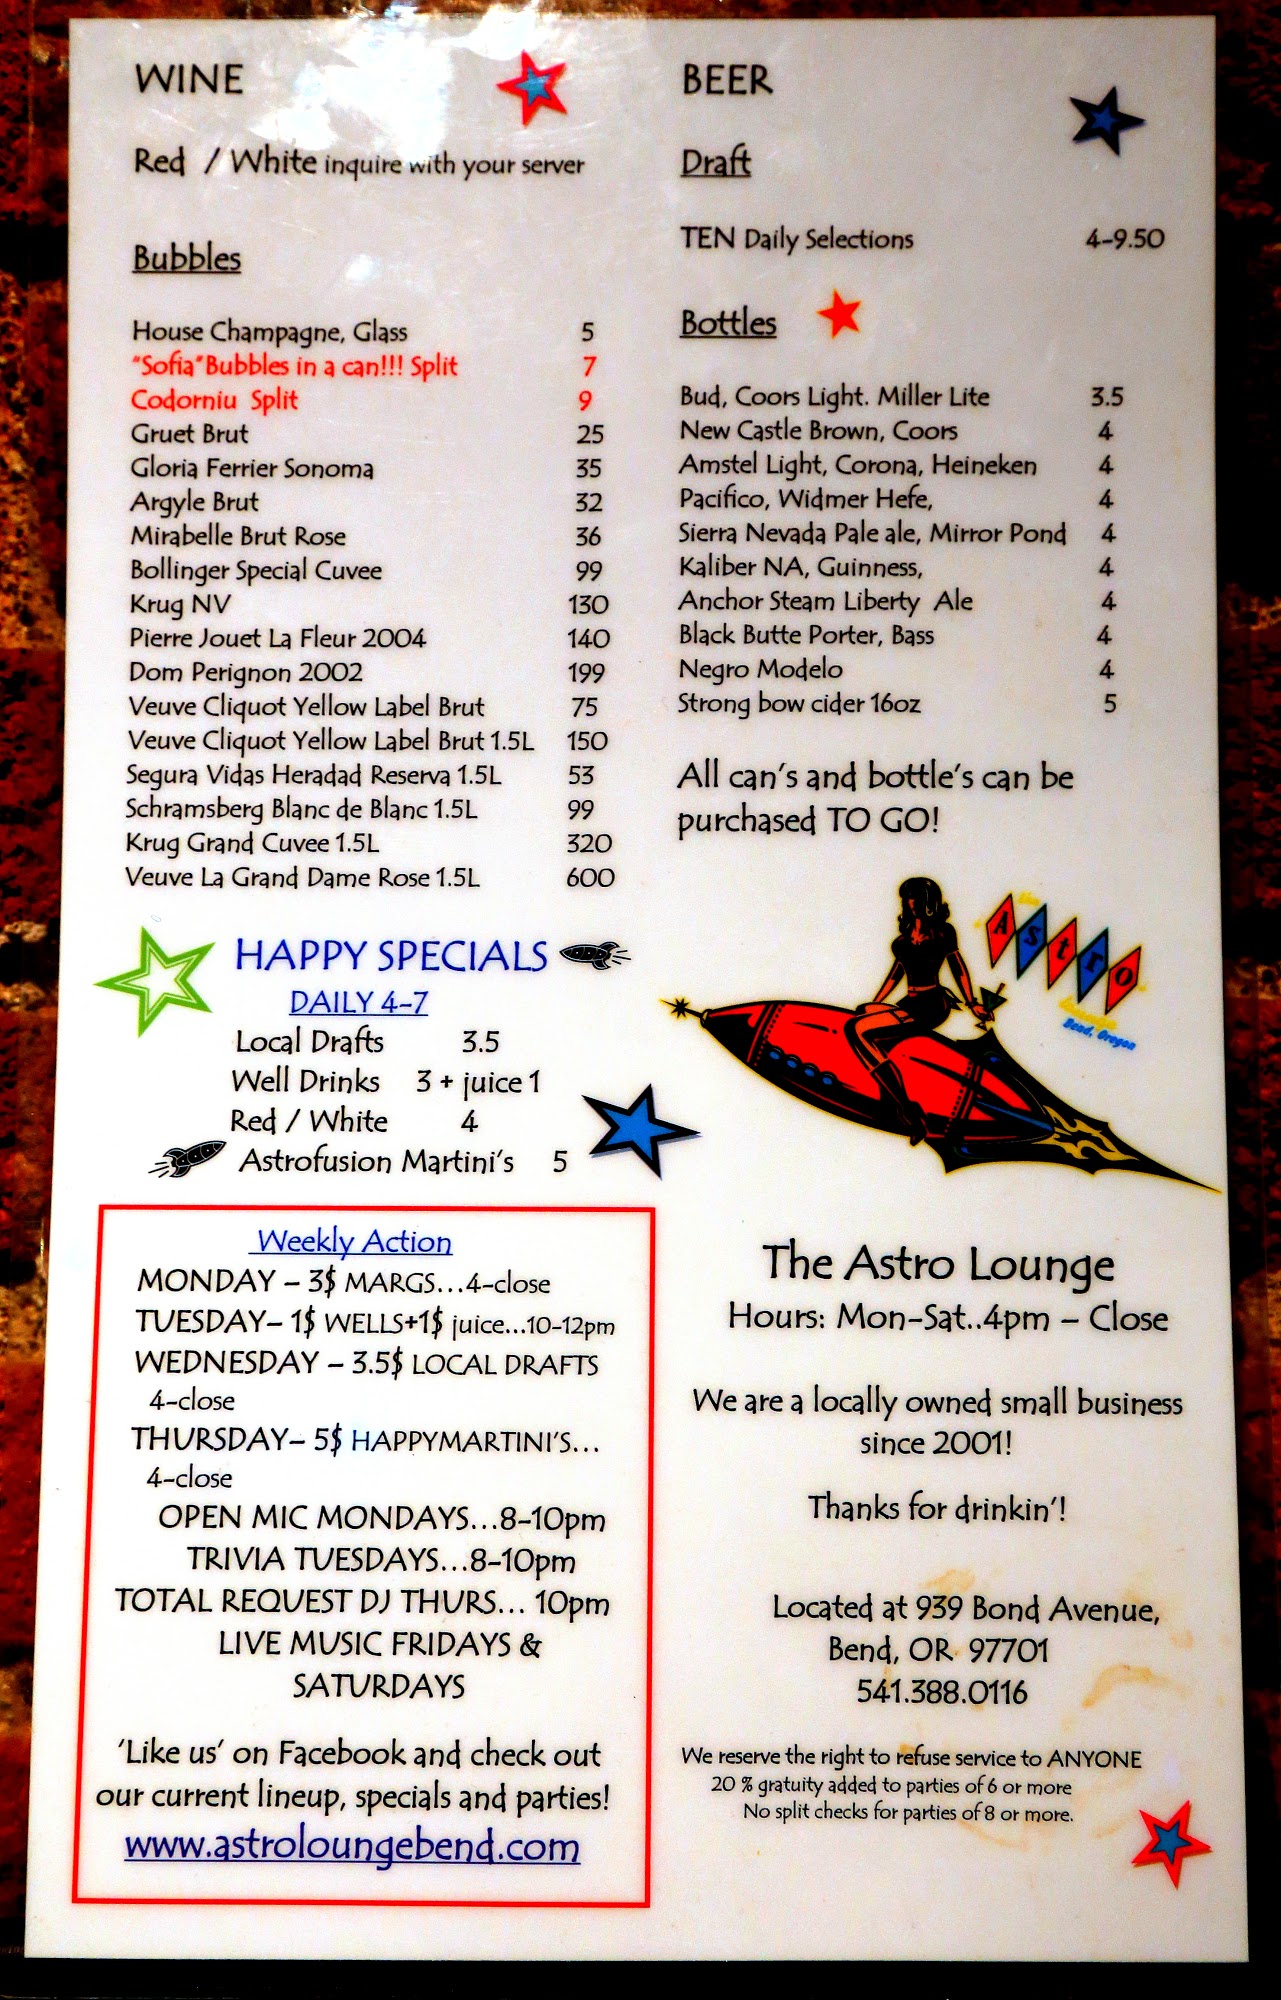 WINE
Red / White inquire with your server
Bubbles
House Champagne, Glass 5
"Sofia"Bubbles in a can!!! Split 7
Codorniu Split 9
Gruet Brut 25
Gloria Ferrier Sonoma 35
Argyle Brut 32
Mirabelle Brut Rose 36
Bollinger Special Cuvee 99
Krug NV 130
Pierre Jouet La Fleur 2004 140
Dom Perignon 2002 199
Veuve Cliquot Yellow Label Brut 75
Veuve Cliquot Yellow Label Brut 1.5L 150
Segura Vidas Heradad Reserva 1.5L 53
Schramsberg Blanc de Blanc 1.5L 99
Krug Grand Cuvee 1.5L 320
Veuve La Grand Dame Rose 1.5L 600
HAPPY SPECIALS
DAILY 4-7
Local Drafts 3.5
Well Drinks 3 + juice 1
Red / White 4
Astrofusion Martini's 5
Weekly Action
MONDAY – 3$ MARGS...4-close
TUESDAY– 1$ WELLS+1$ juice...10-12pm
WEDNESDAY – 3.5$ LOCAL DRAFTS
4-close
THURSDAY– 5$ HAPPYMARTINI'S...
4-close
OPEN MIC MONDAYS...8-10pm
TRIVIA TUESDAYS...8-10pm
TOTAL REQUEST DJ THURS... 10pm
LIVE MUSIC FRIDAYS &
SATURDAYS
'Like us' on Facebook and check out
our current lineup, specials and parties!
www.astroloungebend.com
BEER
Draft
TEN Daily Selections 4-9.50
Bottles
Bud, Coors Light. Miller Lite 3.5
New Castle Brown, Coors 4
Amstel Light, Corona, Heineken 4
Pacifico, Widmer Hefe, 4
Sierra Nevada Pale ale, Mirror Pond 4
Kaliber NA, Guinness, 4
Anchor Steam Liberty Ale 4
Black Butte Porter, Bass 4
Negro Modelo 4
Strong bow cider 16oz 5
All can's and bottle's can be
purchased TO GO!
the
Astro
Bend, Oregon
The Astro Lounge
Hours: Mon-Sat..4pm – Close
We are a locally owned small business
since 2001!
Thanks for drinkin'!
Located at 939 Bond Avenue,
Bend, OR 97701
541.388.0116
We reserve the right to refuse service to ANYONE
20 % gratuity added to parties of 6 or more
No split checks for parties of 8 or more.